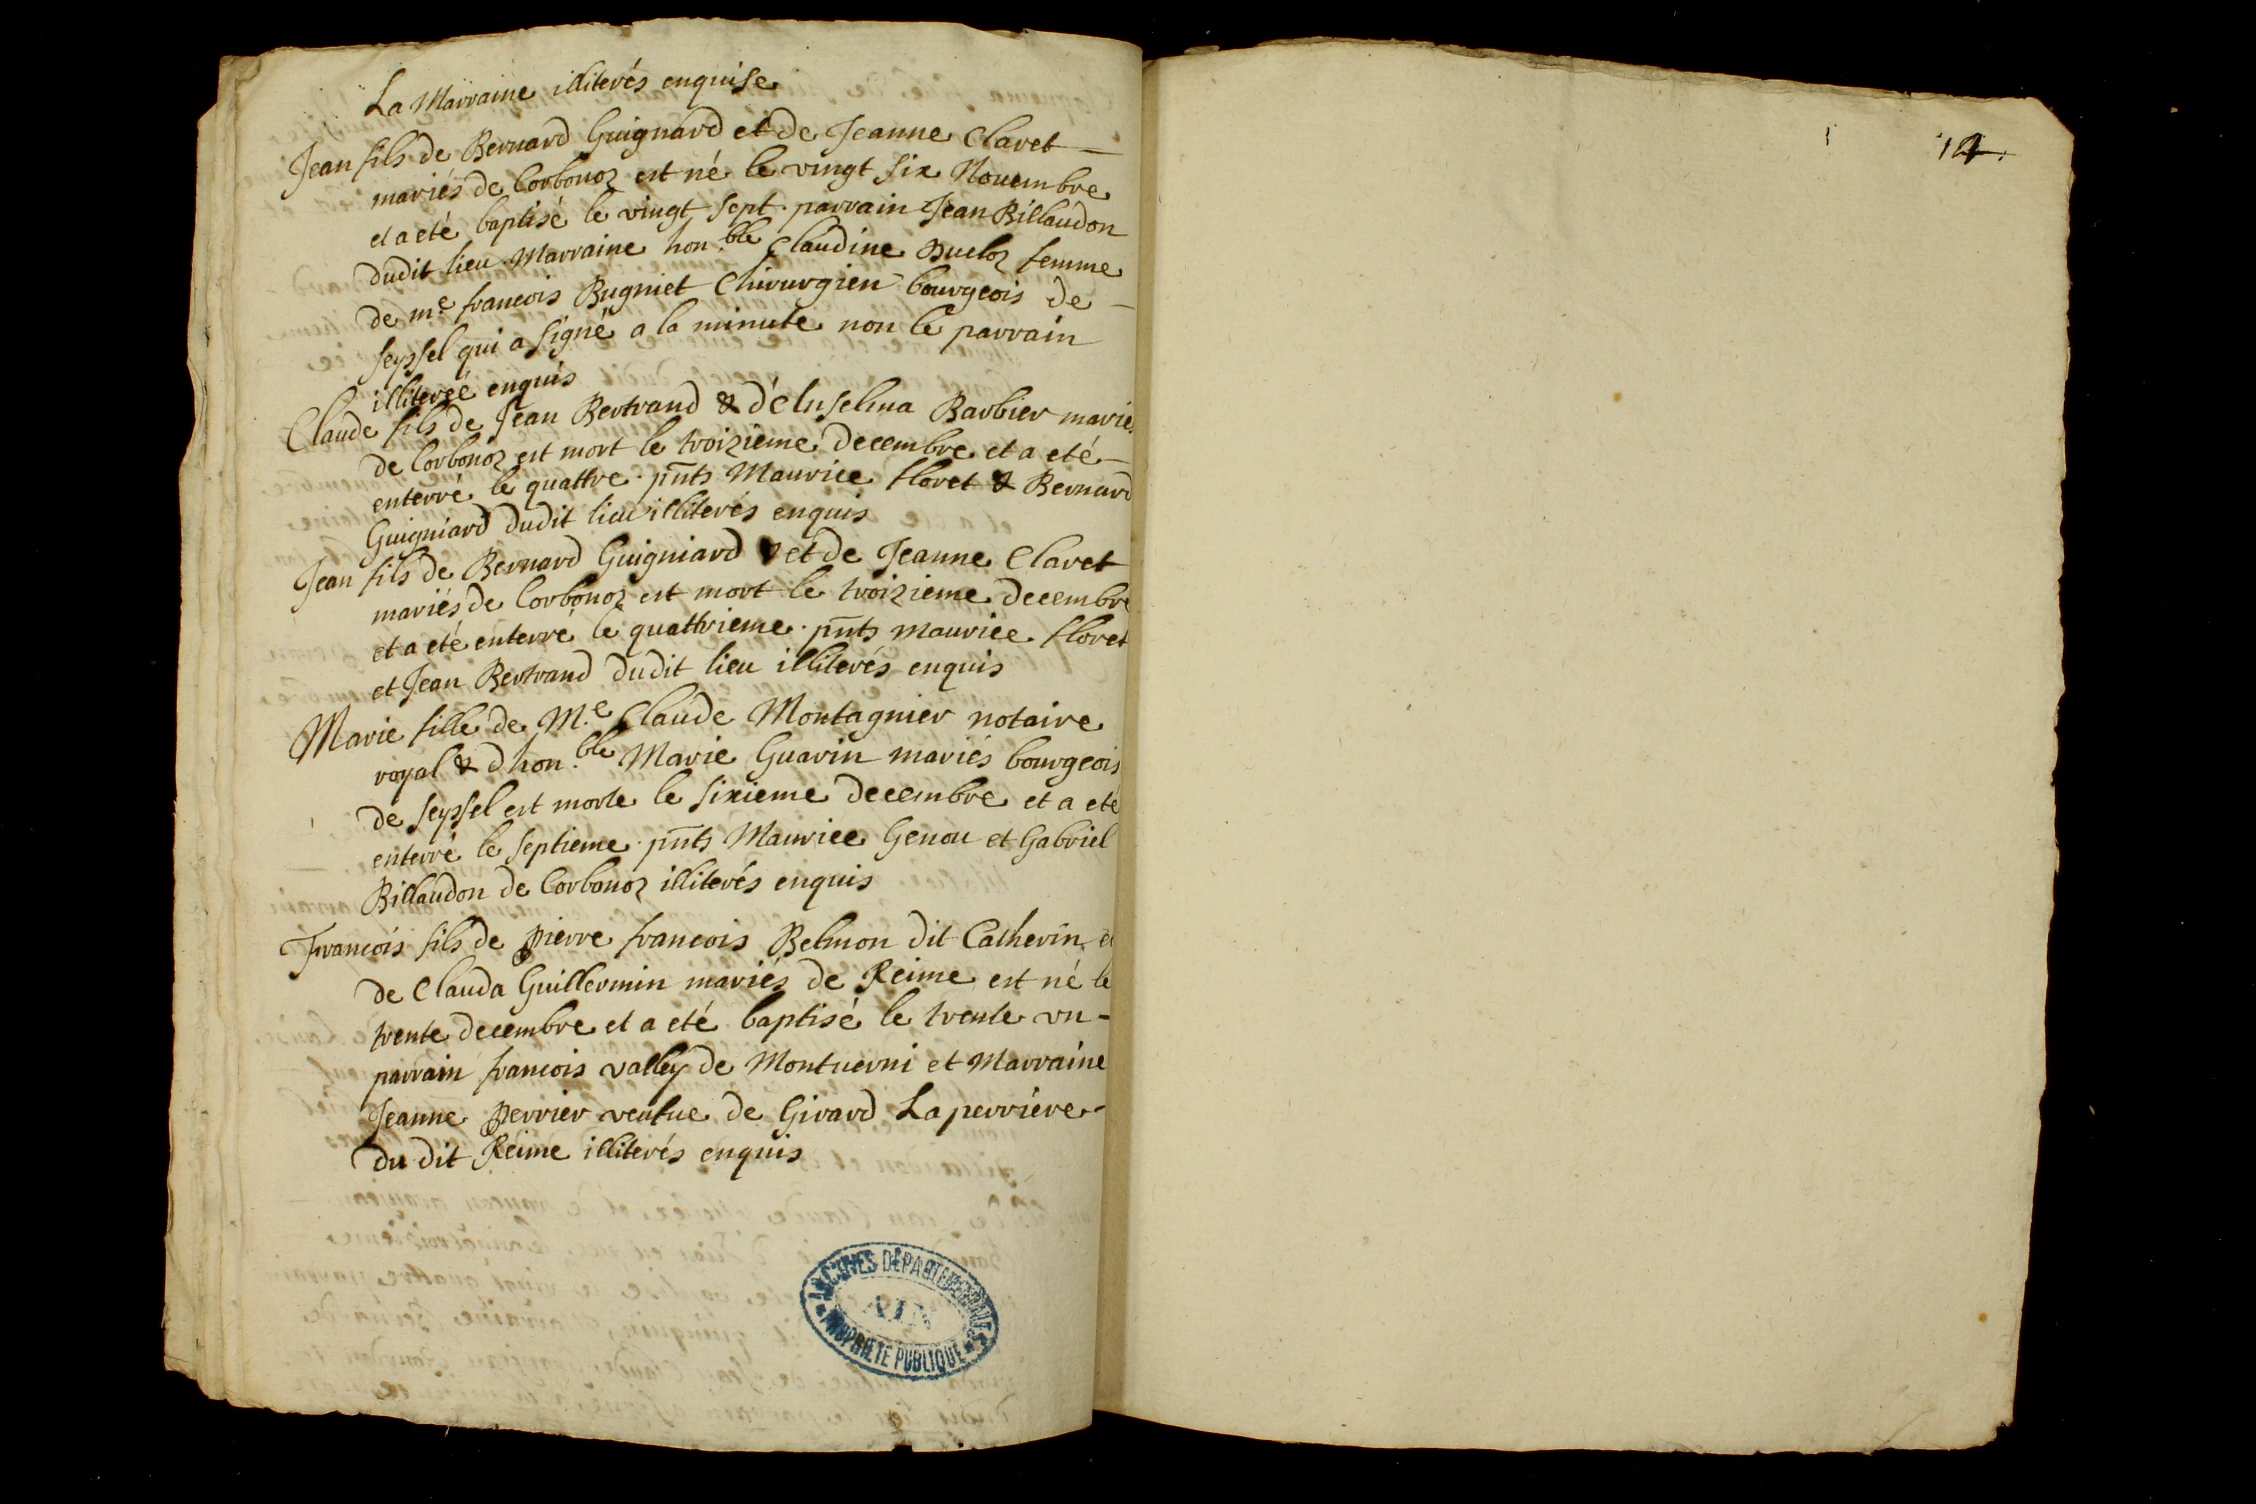 La Marraine illiterés enquise
Jean fils de Bernard Guignard et de Jeanne Claret
mariés de Corbonoz est né le vingt six Nouembre
et a eté baptisé le vingt sept. parrain Jean Billaudon
dudit lieu. Marraine hon.ble Claudine Ducloz femme
de m.e francois Bugniet Chirurgien bourgeois de
seyssel qui a signé a la minute non le parrain
illiteré enquis
Claude fils de Jean Bertrand & d'Anselma Barbier mariés
de Corbonoz est mort le troizieme decembre et a eté
enterré le quattre. pnts Maurice floret & Bernard
Guigniard dudit lieu illiterés enquis
Jean fils de Bernard Guigniard et de Jeanne Claret
mariés de Corbonoz est mort le troizieme decembre
et a eté enterré le quattrieme. pnts Maurice floret
et Jean Bertrand dudit lieu illiterés enquis
Marie fille de M.e Claude Montagnier notaire
royal & d hon.ble Marie Guarin mariés bourgeois
de seyssel est morte le sixieme decembre et a eté
enterré le septieme. pnts Maurice Genou et Gabriel
Billaudon de Corbonoz illiterés enquis
Francois fils de pierre francois Belmon dit Catherin et
de Clauda Guillermin mariés de Reime est né le
trente decembre et a eté baptisé le trente un
parrain francois valley de Montuerni et Marraine
Jeanne perrier veufue de Girard Laperriere
du dit Reime illiterés enquis
ARCHIVES DÉPARTEMENTALES
AIN
PROPRIÉTÉ PUBLIQUE